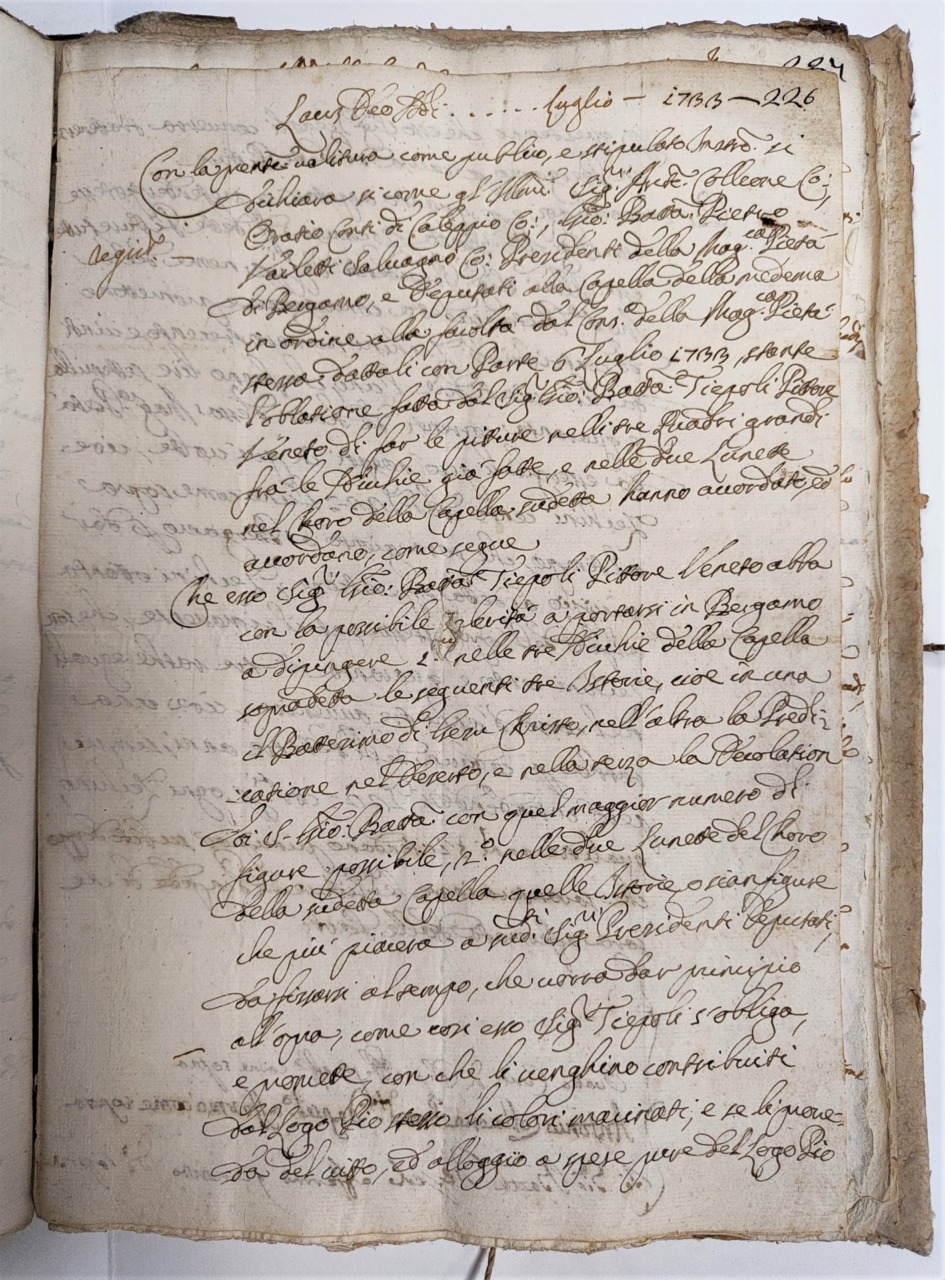 227
Laus Deo Adi ..... luglio — 1733 — 226
Con la pnte ualitura come publico, e stipulato Instrō si
dichiara si come gl'Illmi Sigri Co:
Oratio Conti di Caleppio Co:, Gio: Batta Pietro
regist
Saluagno Co: Presidenti della Mag.ca Pietà
di Bergamo, e Deputati alla Capella della medema
in ordine alla facoltà dal Cons.o della Mag.ca Pietà
stessa dattali con Parte 6 Luglio 1733, stante
l'oblatione fatta dal Sigr Gio: Batta Tiepoli Pittore
Veneto di far le pitture nelli tre Quadri grandi
frà le Nichie già fatte, e nelle due Lunette
nel Choro della Capella sudetta hanno accordato, ed
accordano, come segue
Che esso Sigr Gio: Batta Tiepoli Pittore Veneto abbia
con la possibile celerità a portarsi in Bergamo
a dipingere 1.o nelle tre Nichie della Capella
sopradetta le seguenti tre Istorie, cioè in una
il Battesimo di Giesu Christo, nell'altra la Predi:
:catione nel Deserto, e nella terza la Decolation
di S. Gio: Batta: con quel maggior numero di
figure possibile, 2.o nelle due Lunette del Choro
della sudetta Capella quelle Istorie, o sian figure
che più piacerà a sudti Sigri Presidenti Deputati,
da fissarsi al tempo, che uorrà dar principio
all'opra, come così esso Sigr Tiepoli s'obliga,
e promette, con che li uenghino contribuiti
dal Logo Pio stesso li colori macinati, e se li proue-
da del uitto, ed alloggio a spese pure del Logo Pio